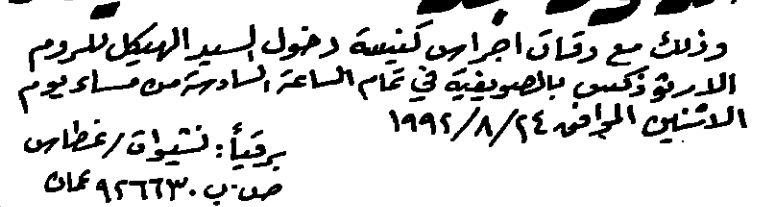 وذلك مع دقات اجراس كنيسة دخول السيد الهيكل للروم
الارثوذكس بالصويفية في تمام الساعة السادسة من مساء يوم
الاثنين الموافق ١٩٩٢/٨/٢٤
برقياً: نشيوات / غطاس
ص.ب ٩٢٦٦٣٠ عمان